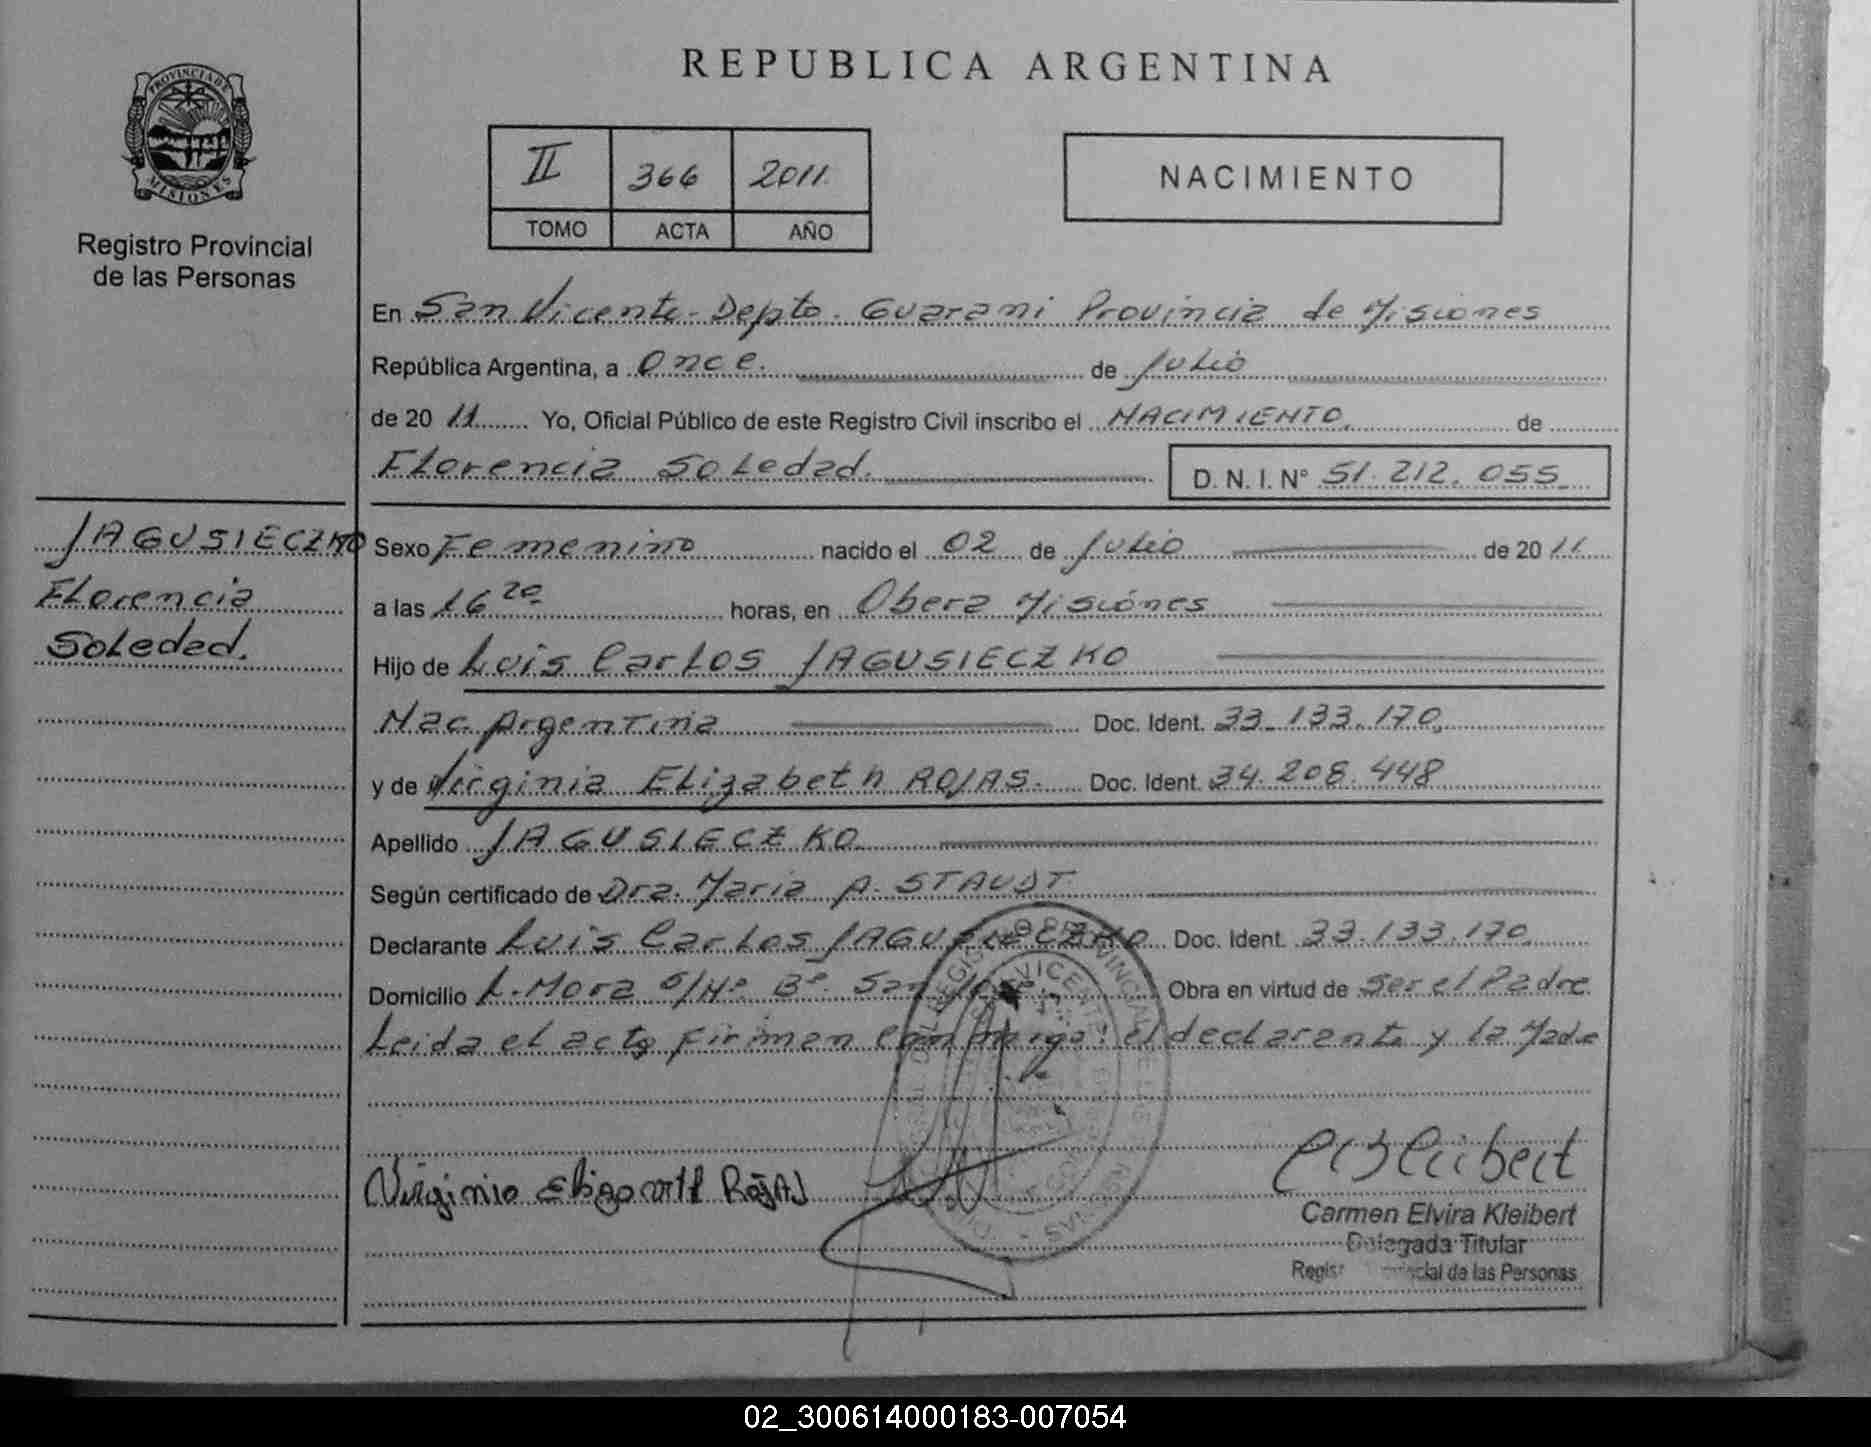 REPUBLICA ARGENTINA
PROVINCIA DE
MISIONES
Registro Provincial
de las Personas
II 366 2011
TOMO ACTA AÑO
NACIMIENTO
En San Vicente - Depto. Guarani Provincia de Misiones
República Argentina, a Once. de Julio
de 20 11 Yo, Oficial Público de este Registro Civil inscribo el NACIMIENTO. de
Florencia Soledad. D. N. I. N° 51.212.055
JAGUSIECZKO
Florencia
Soledad.
Sexo Femenino nacido el 02 de Julio de 20 11
a las 16 20 horas, en Obera Misiónes
Hijo de Luis Carlos JAGUSIECZKO
Nac. Argentina Doc. Ident. 33.133.170.
y de Virginia Elizabeth ROJAS. Doc. Ident. 34.208.448
Apellido JAGUSIECZKO
Según certificado de Dra. Maria A. STAUDT
Declarante Luis Carlos JAGUSIECZKO Doc. Ident. 33.133.170.
Domicilio L. Mora S/Nº Bº San José Obra en virtud de Ser el Padre
Leida el acta firman conmigo: el declarante y la Madre
Virginia Elizabeth Rojas
Carmen Elvira Kleibert
Delegada Titular
Registro Provincial de las Personas
02_300614000183-007054